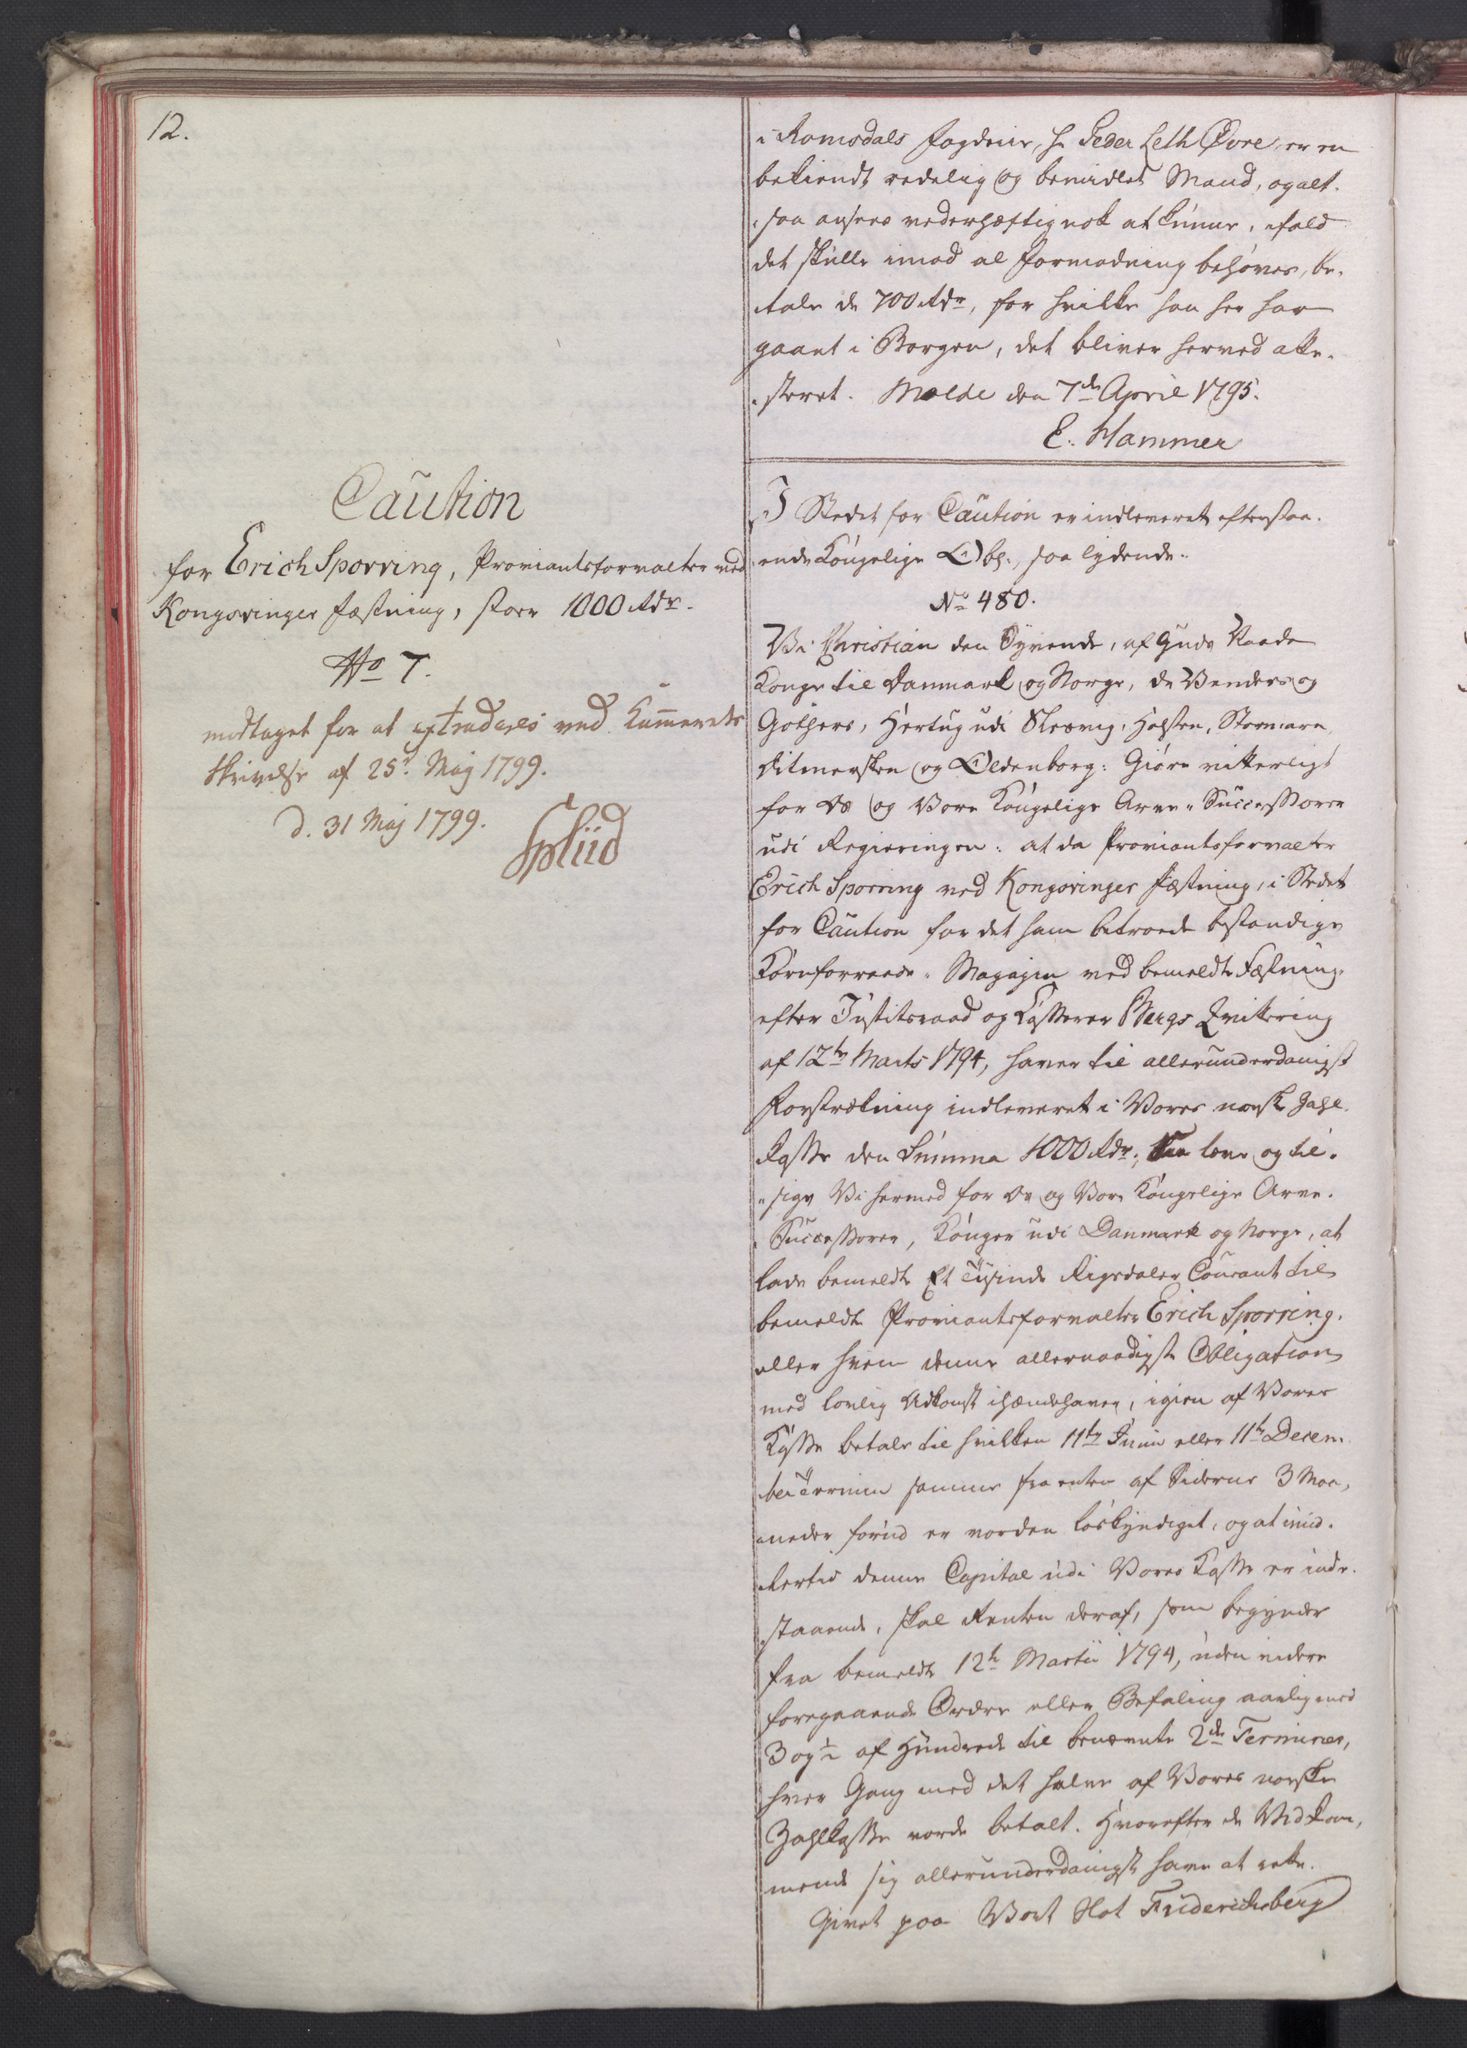 12.
i Romsdals Fogderie, Hr Peder Leth Øvre, er en
bekiendt redelig og bemidlet Mand, og alt-
saa ansees vederhæftig nok at kunne, ifald
det skulle imod al Formodning behøves, be-
tale de 700 Rdr, for hvilke han her har
gaaet i Borgen, det bliver herved atte-
steret. Molde den 7de April 1795.
E. Hammer
Caution
for Erich Sporring, Proviantsforvalter ved
Kongsvinger Fæstning, stor 1000 Rdr.
No 7.
modtaget for at extraderes ved Kammerets
Skrivelse af 25d. Maj 1799.
d. 31 Maj 1799.
Spliid
I Stedet for Caution er indleveret efterstaa-
ende Kongelige Obl., saa lydende:
No 480.
Vi Christian den Syvende, af Guds Naade
Konge til Danmark og Norge, de Venders og
Gothers, Hertug udi Slesvig, Holsten, Stormarn
Ditmersken og Oldenborg: Giøre vitterligt
for Os og Vore Kongelige Arve-Successorer
udi Regieringen: at da Proviantsforvalter
Erich Sporring ved Kongsvinger Fæstning, i Stedet
for Caution for det ham betroede bestandige
Kornforraads-Magazin ved bemeldte Fæstning,
efter Justitsraad og Kasserer Bergs Qvittering
af 12te Marts 1794, haver til allerunderdanigst
Forstrækning indleveret i Vores norske Zahl-
kasse den Summa 1000 Rdr; Saa love og til-
sige Vi hermed for Os og Vore Kongelige Arve-
Successorer, Konger udi Danmark og Norge, at
lade bemeldte Et Tusinde Rigsdaler Courant til
bemeldte Proviantsforvalter Erich Sporring,
eller hvem denne allernaadigste Obligation
med lovlig Adkomst ihændehaver, igien af Vores
Kasse betale til hvilken 11te Junii eller 11te Decem-
bei Termin samme fra enten af Siderne 3 Maa-
neder forud er vorden løskyndiget, og at imid-
lertid denne Capital udi Vores Kasse er inde-
staaende, skal Renten deraf, som begynder
fra bemeldte 12te Martii 1794, uden videre
foregaaende Ordre eller Befaling aarlig med
3 og ½ af Hundrede til benævnte 2de Terminer,
hver Gang med det halve af Vores norske
Zahlkasse vorde betalt. Hvorefter de Vedkom-
mende sig allerunderdanigst have at rette.
Givet paa Vort Slot Friderichsberg